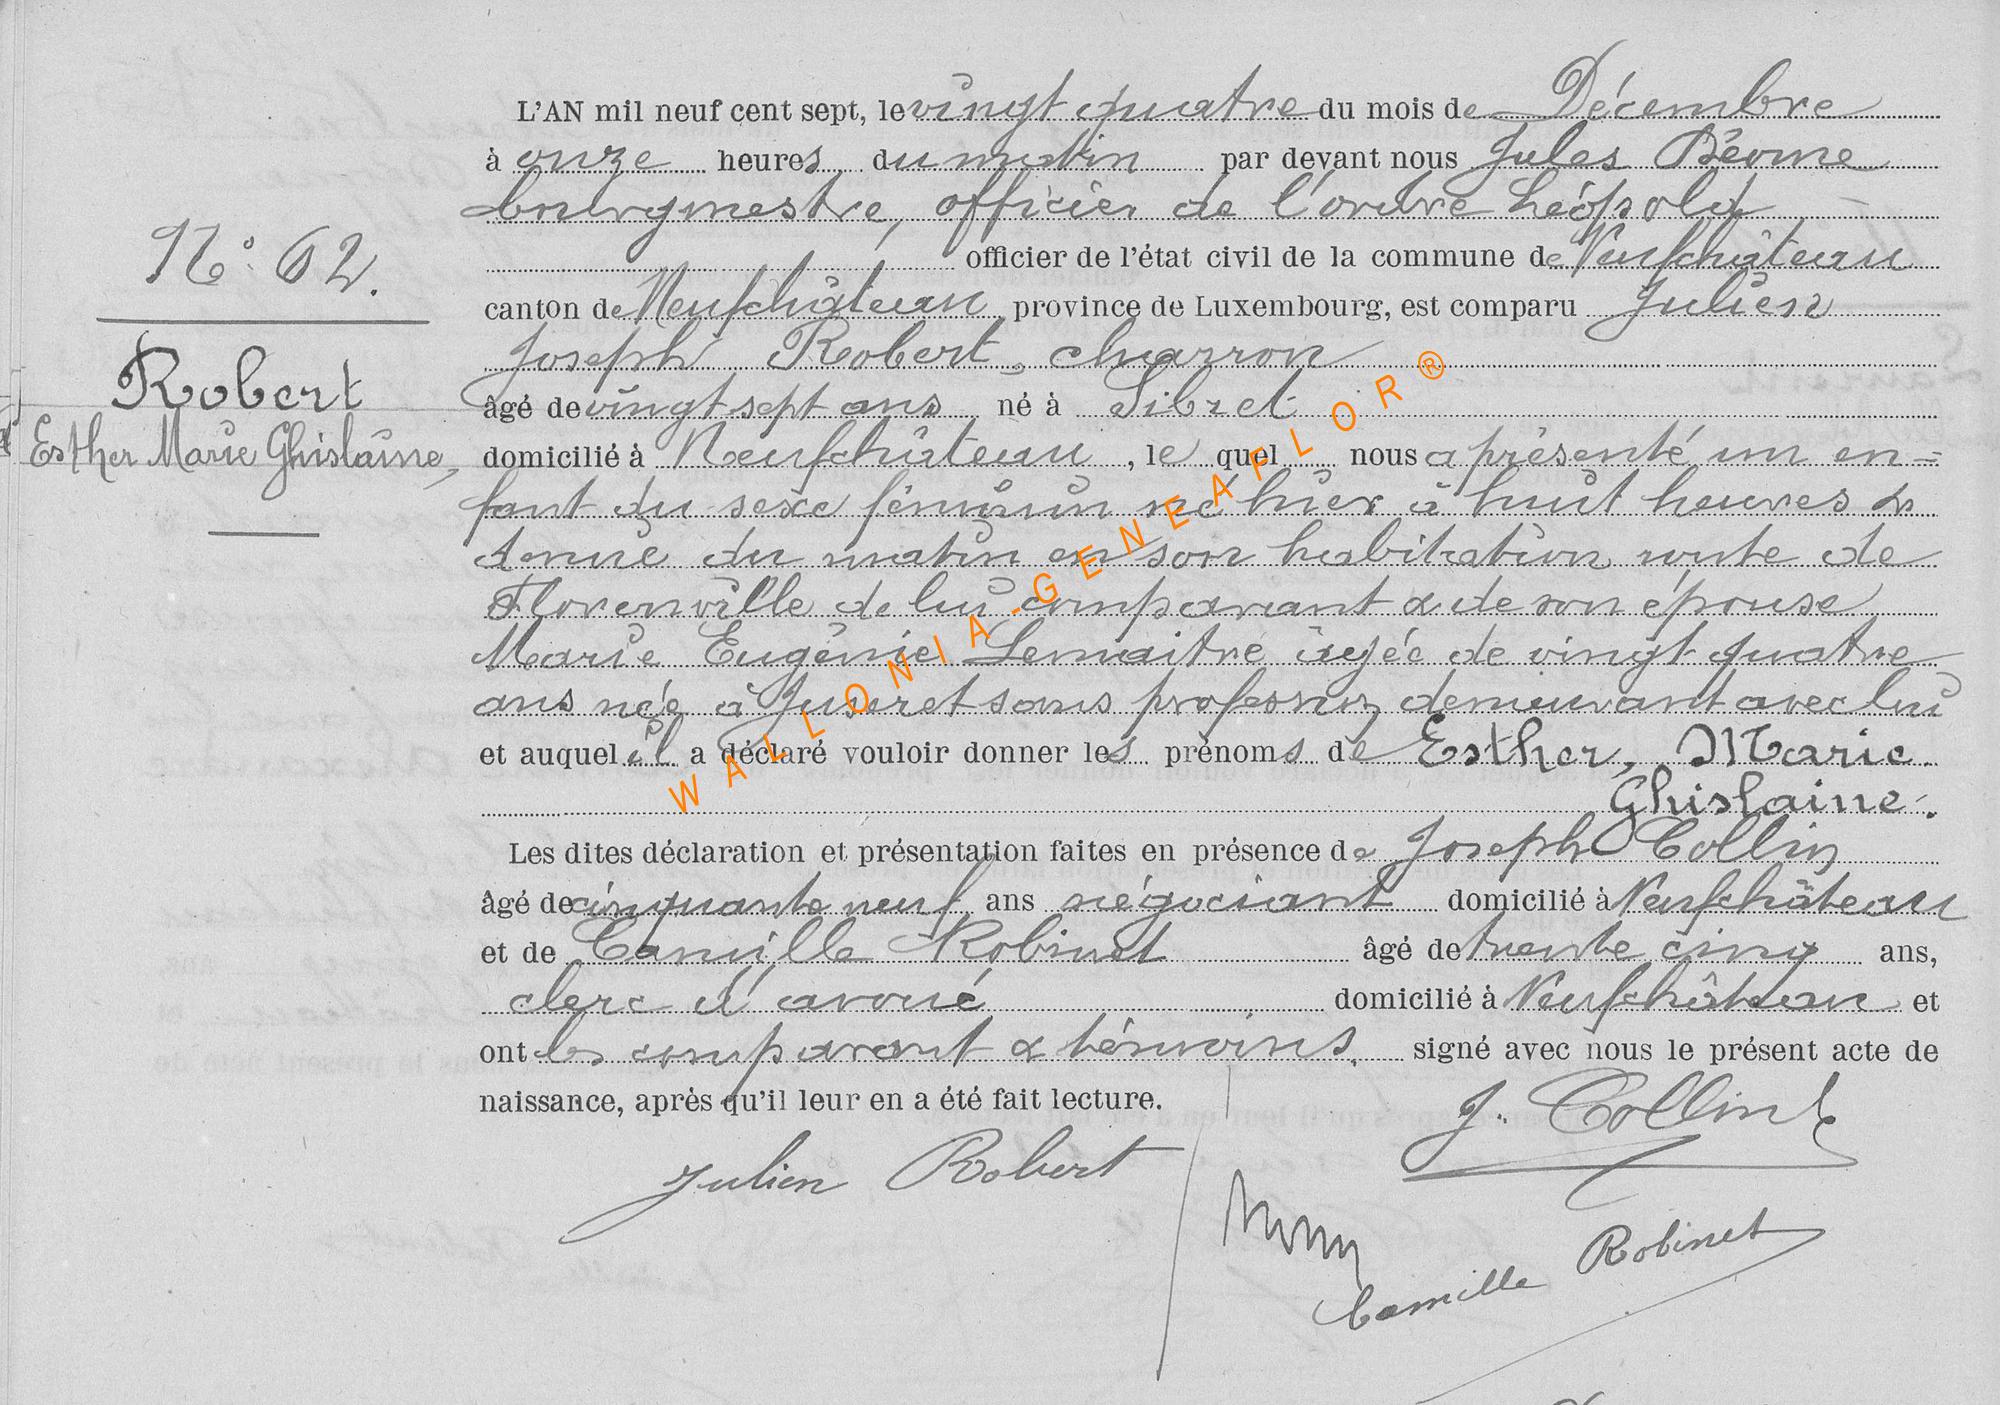 L'AN mil neuf cent sept, le vingt quatre du mois de Décembre
à onze heures du matin par devant nous Jules
bourgmestre, officier de l'ordre Léopold
N° 62.
officier de l'état civil de la commune de Neufchâteau
canton de Neufchâteau province de Luxembourg, est comparu Julien
Robert
Joseph Robert, charron
âgé de vingt sept ans né à Sibret
Esther Marie Ghislaine,
domicilié à Neufchâteau, le quel nous a présenté un en=
fant du sexe féminin né hier à huit heures &
demie du matin en son habitation route de
Florenville de lui comparant & de son épouse
Marie Eugénie Lemaitre âgée de vingt quatre
ans née à Juseret sans profession demeurant avec lui
et auquel il a déclaré vouloir donner les prénoms de Esther, Marie
Ghislaine.
Les dites déclaration et présentation faites en présence de Joseph Collin
âgé de cinquante neuf ans négociant domicilié à Neufchâteau
et de Camille Robinet âgé de trente cinq ans,
clerc d'avoué domicilié à Neufchâteau et
ont les comparant & témoins signé avec nous le présent acte de
naissance, après qu'il leur en a été fait lecture.
J. Collin
Julien Robert
Camille Robinet
WALLONIA-GENEAFLOR®